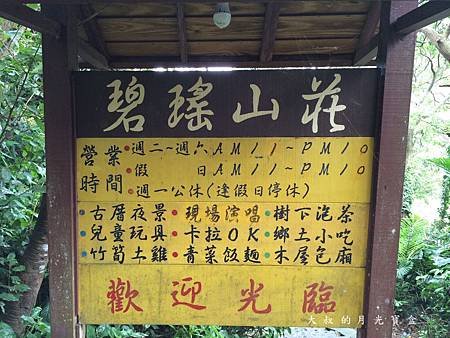 碧瑤山莊
營業時間
•週二~週六AM11~PM10
•假　日AM11~PM10
•週一公休(逢假日停休)
•古厝夜景•現場演唱•樹下泡茶
•兒童玩具•卡拉OK•鄉土小吃
•竹筍土雞•青菜飯麵•木屋包廂
歡迎光臨
大叔的月光寶盒